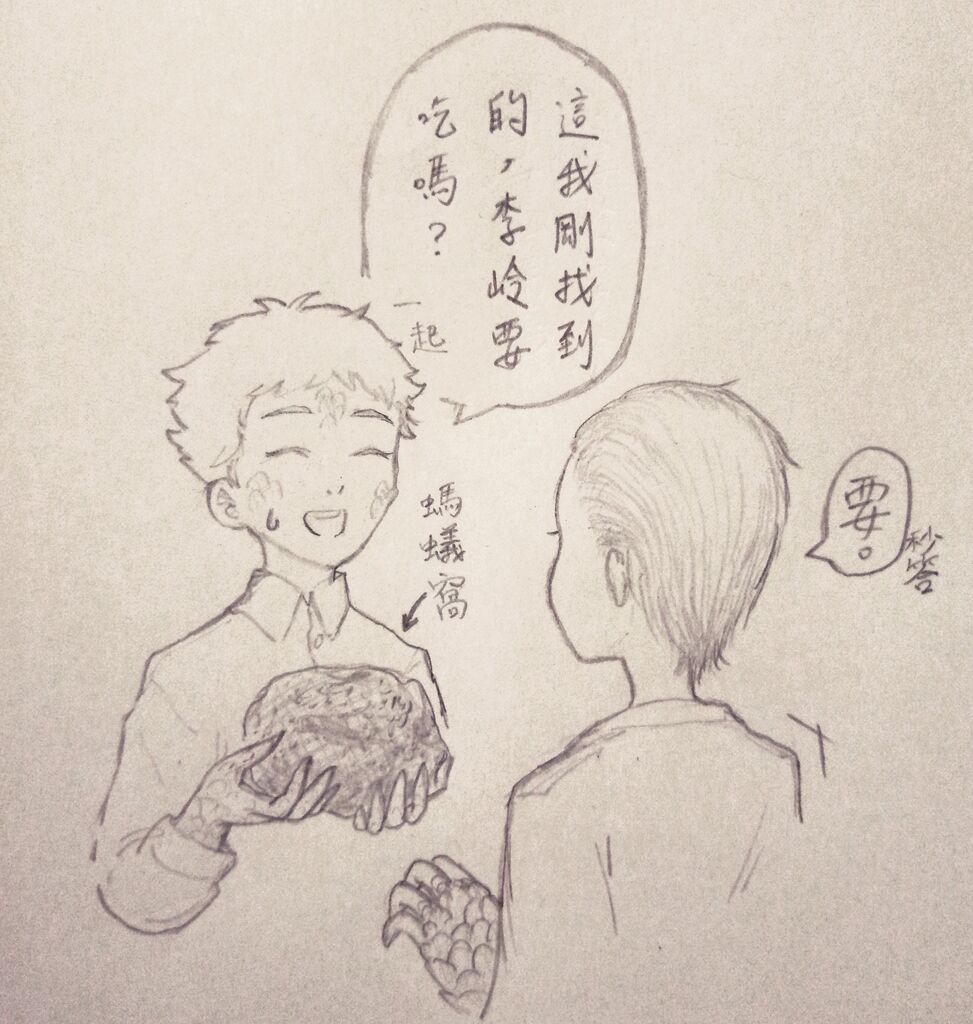 這我剛找到
的，李岭要
吃嗎？
一起
螞蟻窩
要。
秒答